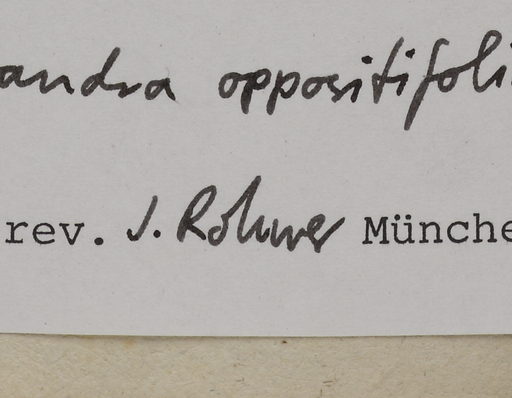 andra oppositifoli
rev. J. Rohwer Münche